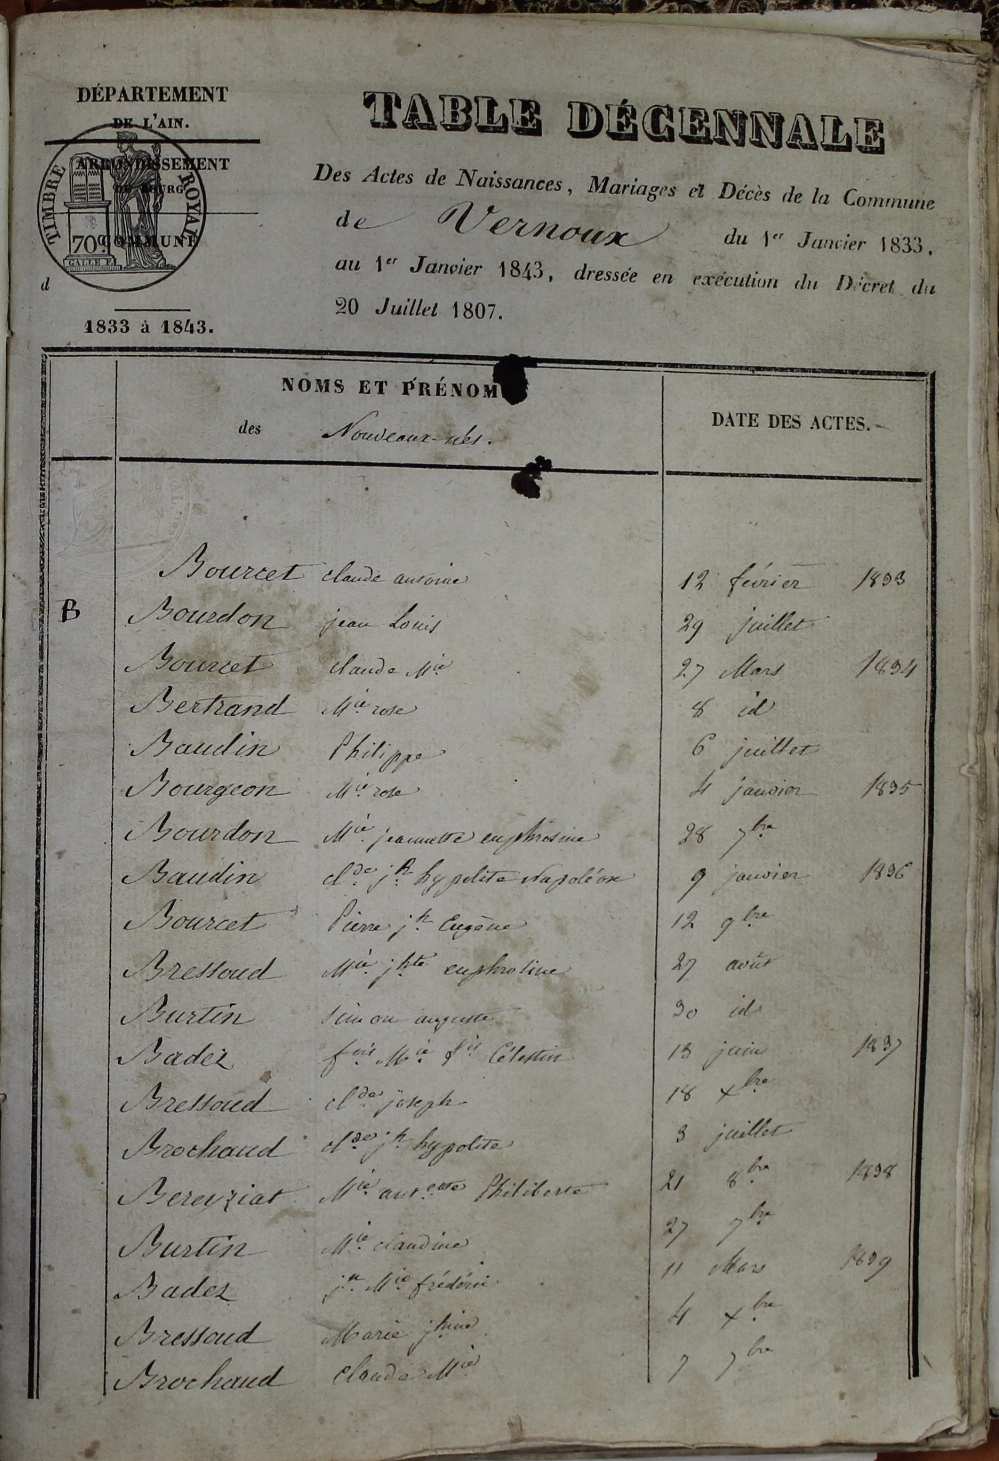 DÉPARTEMENT
DE L'AIN.
ARRONDISSEMENT
DE BOURG
COMMUNE
d
TIMBRE ROYAL
70c
1833 à 1843.
TABLE DÉCENNALE
Des Actes de Naissances, Mariages et Décès de la Commune
de Vernoux du 1er Janvier 1833,
au 1er Janvier 1843, dressée en exécution du Décret du
20 Juillet 1807.
NOMS ET PRÉNOM
des Nouveaux-nés.
DATE DES ACTES.
Bourcet claude antoine 12 février 1833
B Bourdon jean Louis 29 juillet
Bourcet claude Mie 27 Mars 1834
Bertrand Mie rose 8 id
Baudin Philippe 6 juillet
Bourgeon Mie rose 4 janvier 1835
Bourdon Mie jeannette euphrosine 28 7bre
Baudin Cl.de jh hypolite Napoléon 9 janvier 1836
Bourcet Pierre jh Eugène 12 9bre
Bressoud Mie jhte euphrosine 27 août
Burtin simon auguste 30 id
Badez Mie Célestin 13 juin 1837
Bressoud cl.de joseph 18 xbre
Brochaud cl.de jh hypolite 3 juillet
Bereyziat Mie Philiberte 21 8bre 1838
Burtin Mie claudine 27 7bre
Badez jn Mie frédéric 11 Mars 1839
Bressoud Marie jhine 4 xbre
Brochaud Claude Mie 7 7bre